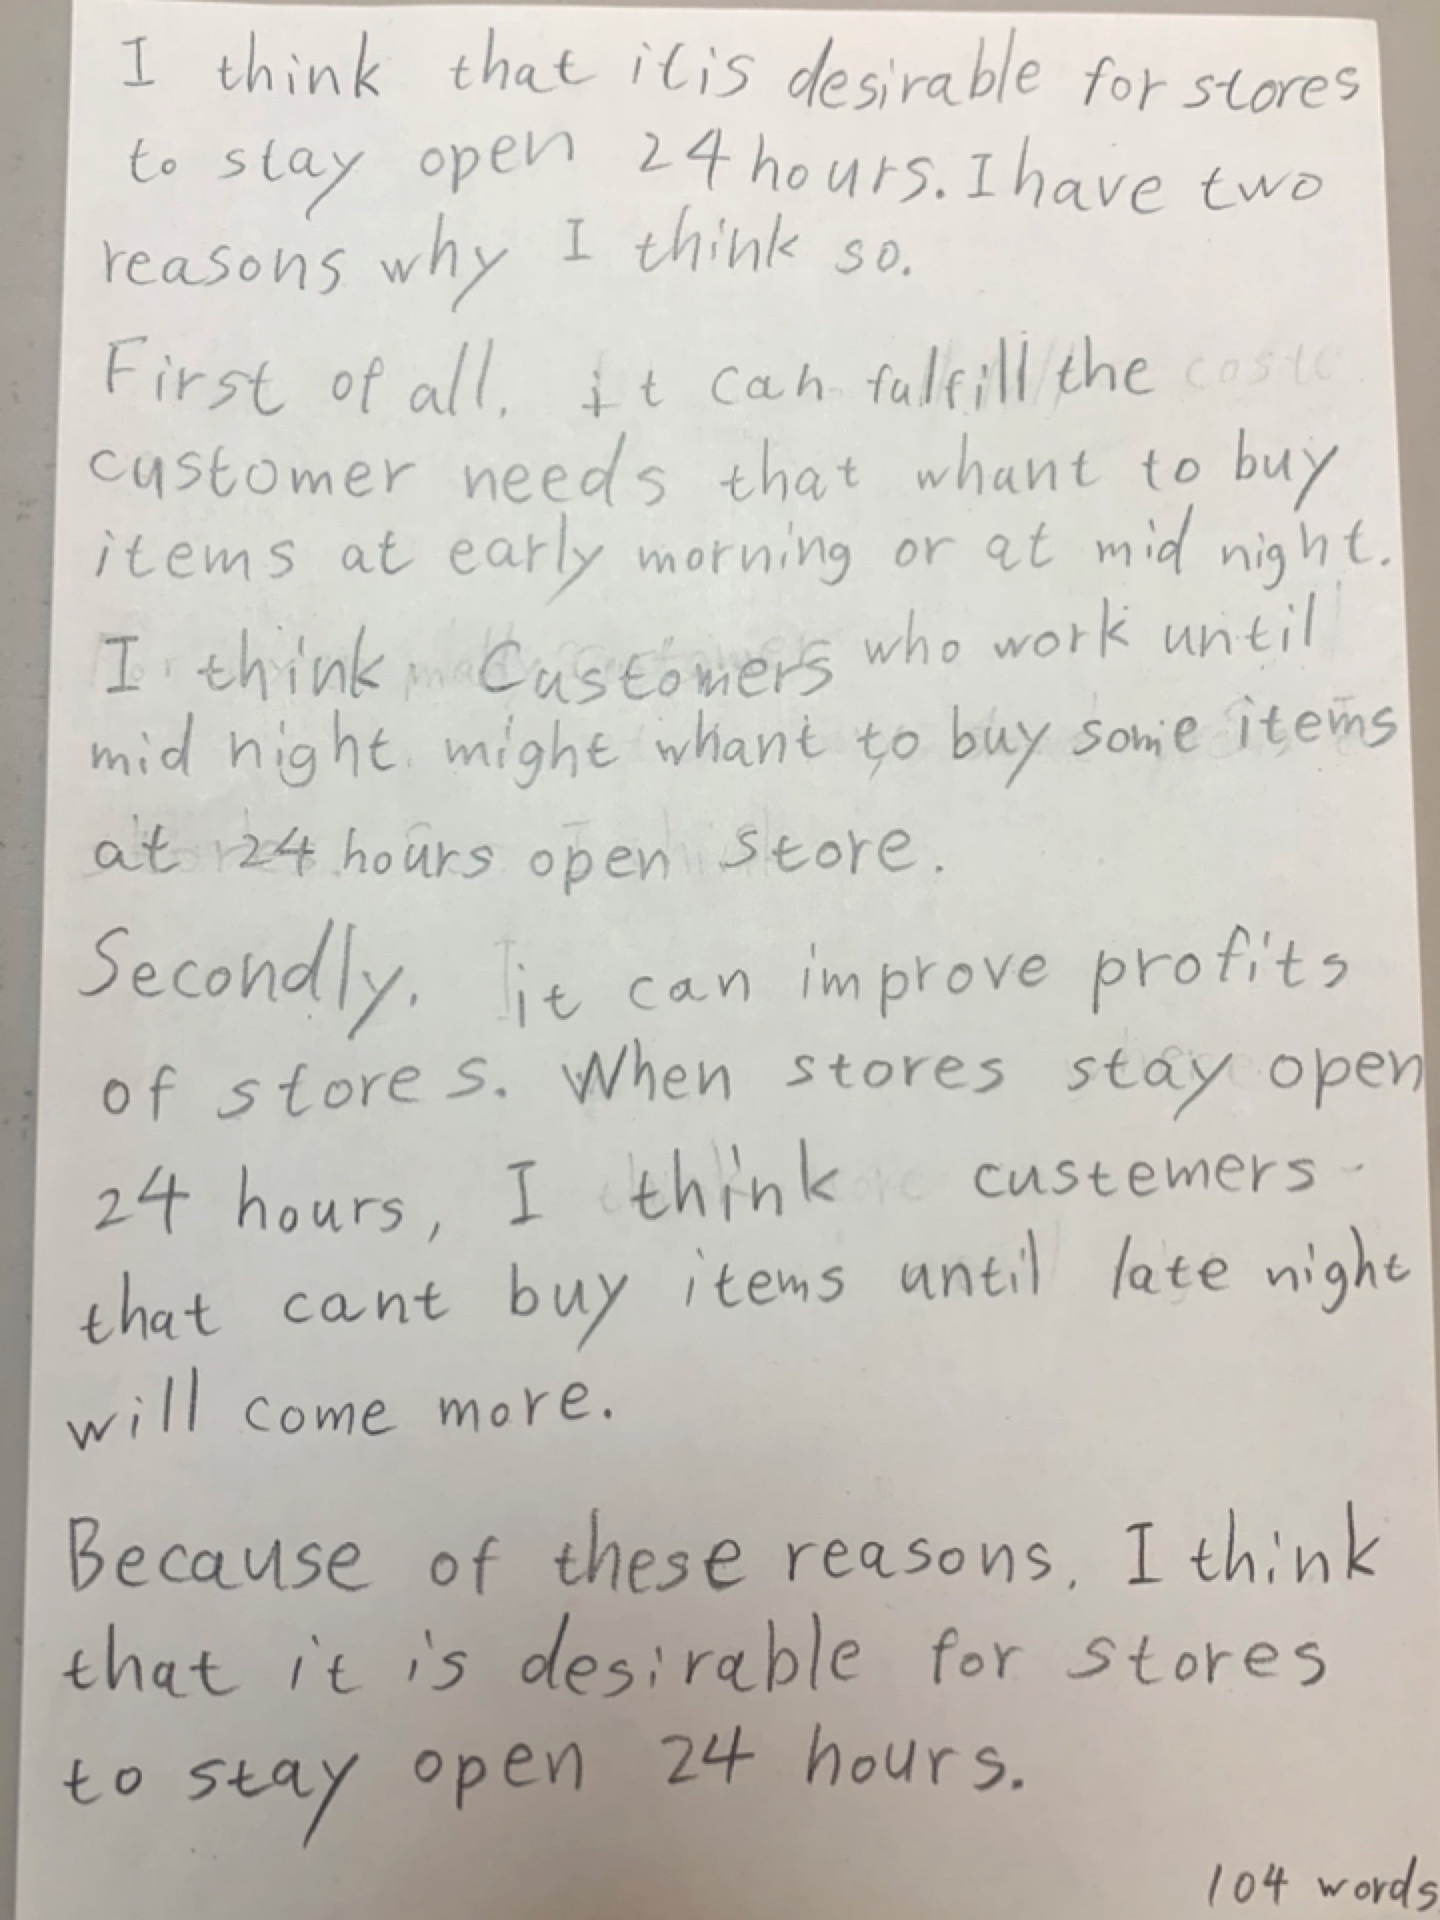 I think that it is desirable for stores
to stay open 24 hours. I have two
reasons why I think so.
First of all. it can fulfill the
customer needs that whant to buy
items at early morning or at mid night.
I think Customers who work until
mid night might whant to buy some items
at 24 hours open store.
Secondly. it can improve profits
of stores. When stores stay open
24 hours, I think custemers
that cant buy items until late night
will come more.
Because of these reasons. I think
that it is desirable for stores
to stay open 24 hours.
104 words